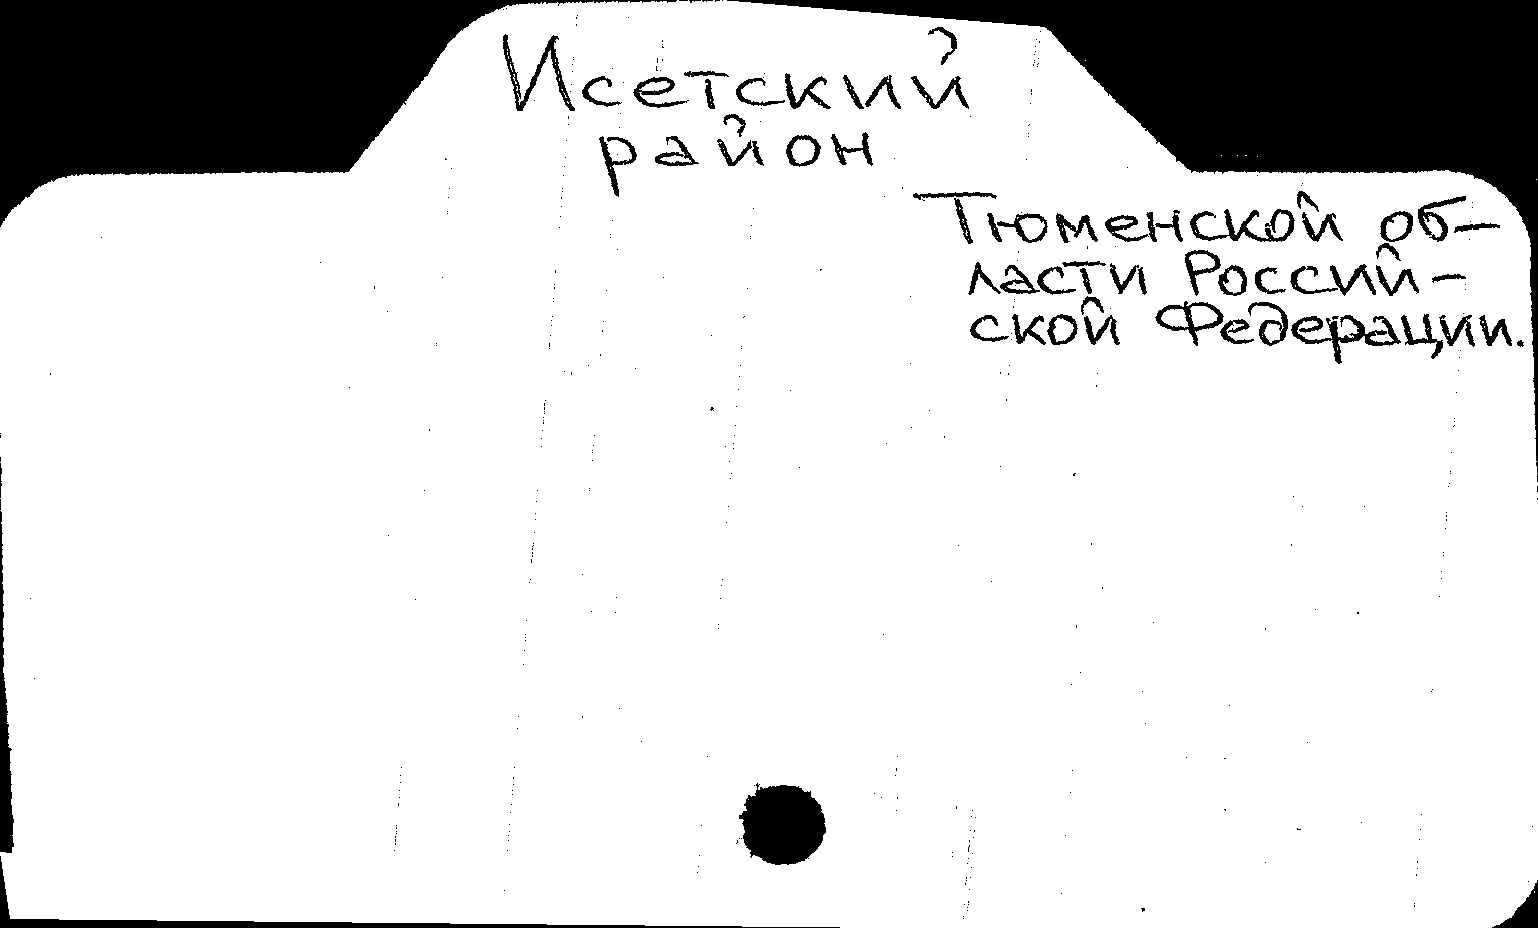 Исетский
район
Тюменской об-
ласти Россий-
ской Федерации.